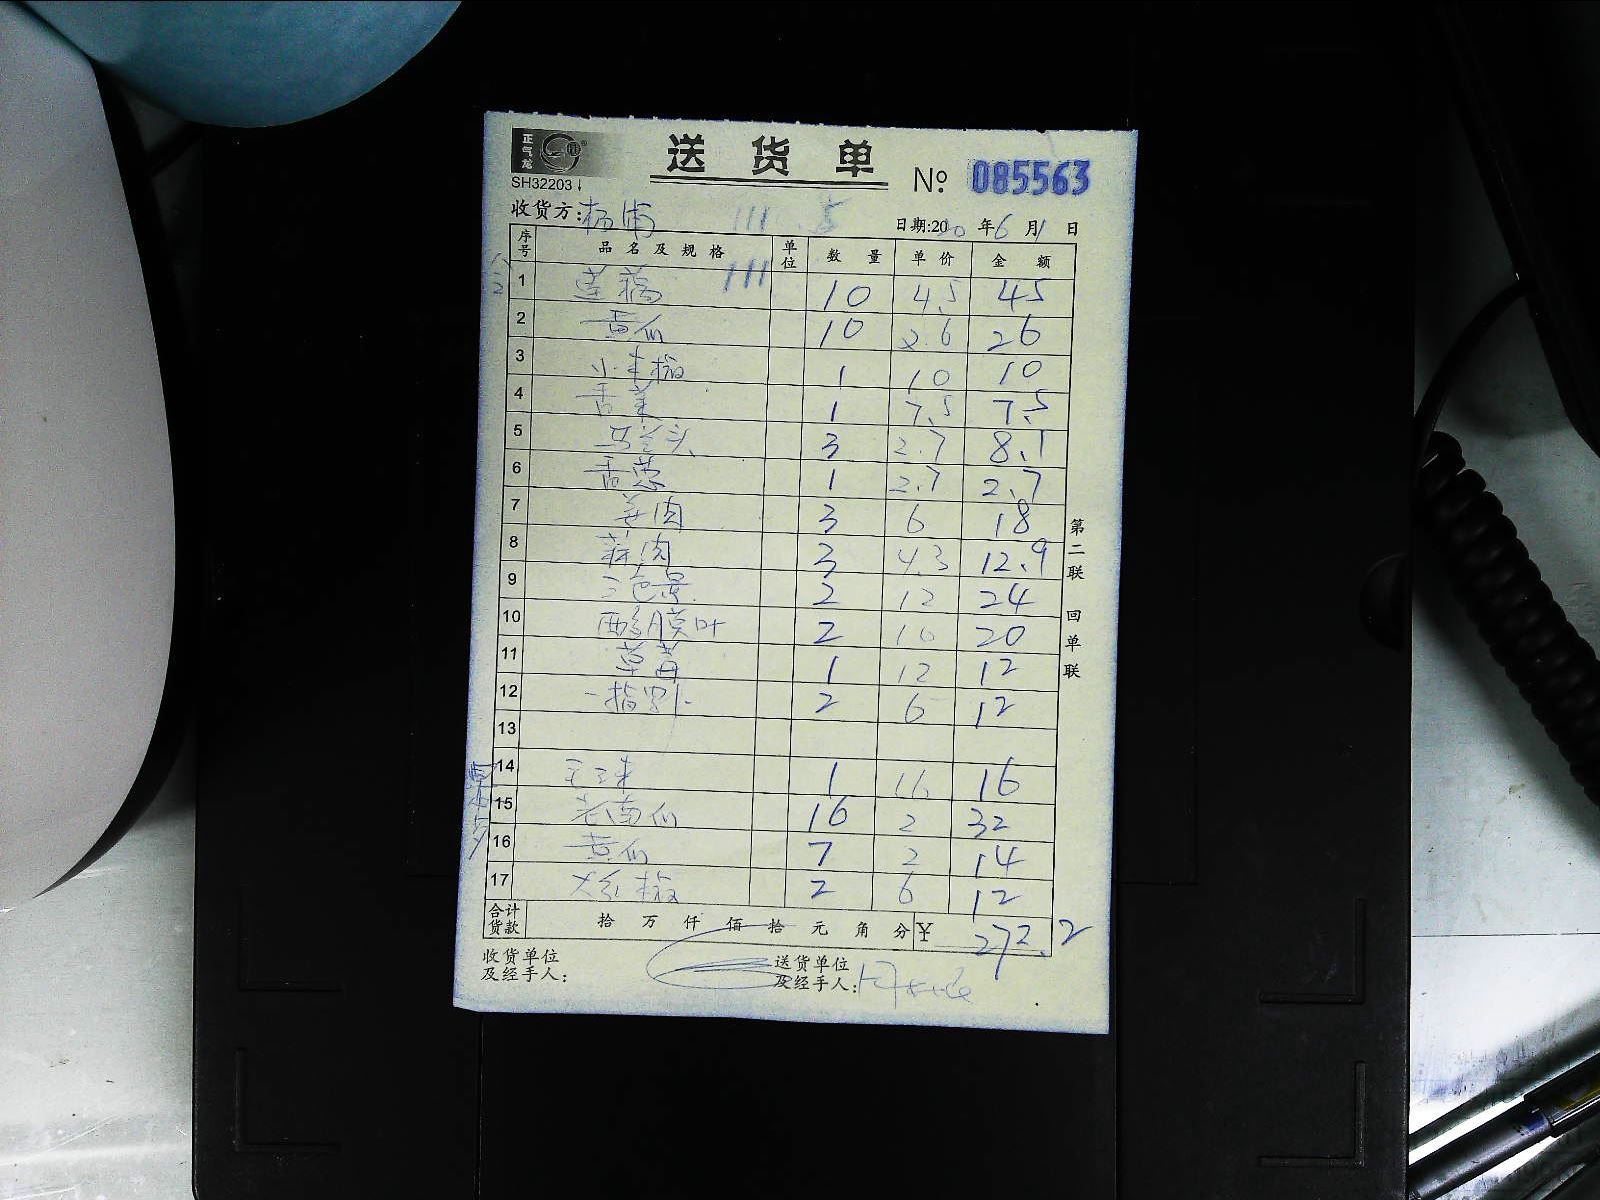 正气龙
送货单
SH32203
№ 085563
收货方:杨浦 111.5
日期:2020年6月1日
序号 品名及规格 单位 数量 单价 金额
1 莲藕 111 10 4.5 45
2 黄瓜 10 2.6 26
3 小米椒 1 10 10
4 香菜 1 7.5 7.5
5 马兰头 3 2.7 8.1
6 香葱 1 2.7 2.7
7 姜肉 3 6 18
8 蒜肉 3 4.3 12.9
9 三色堇 2 12 24
10 酸膜叶 2 10 20
11 草莓 1 12 12
12 2 6 12
13
14 玉米 1 16 16
15 老南瓜 16 2 32
16 黄瓜 7 2 14
17 大红椒 2 6 12
合计货款 拾 万 仟 佰 拾 元 角 分 ¥ 272.2
收货单位及经手人:
送货单位及经手人:
第二联 回单联